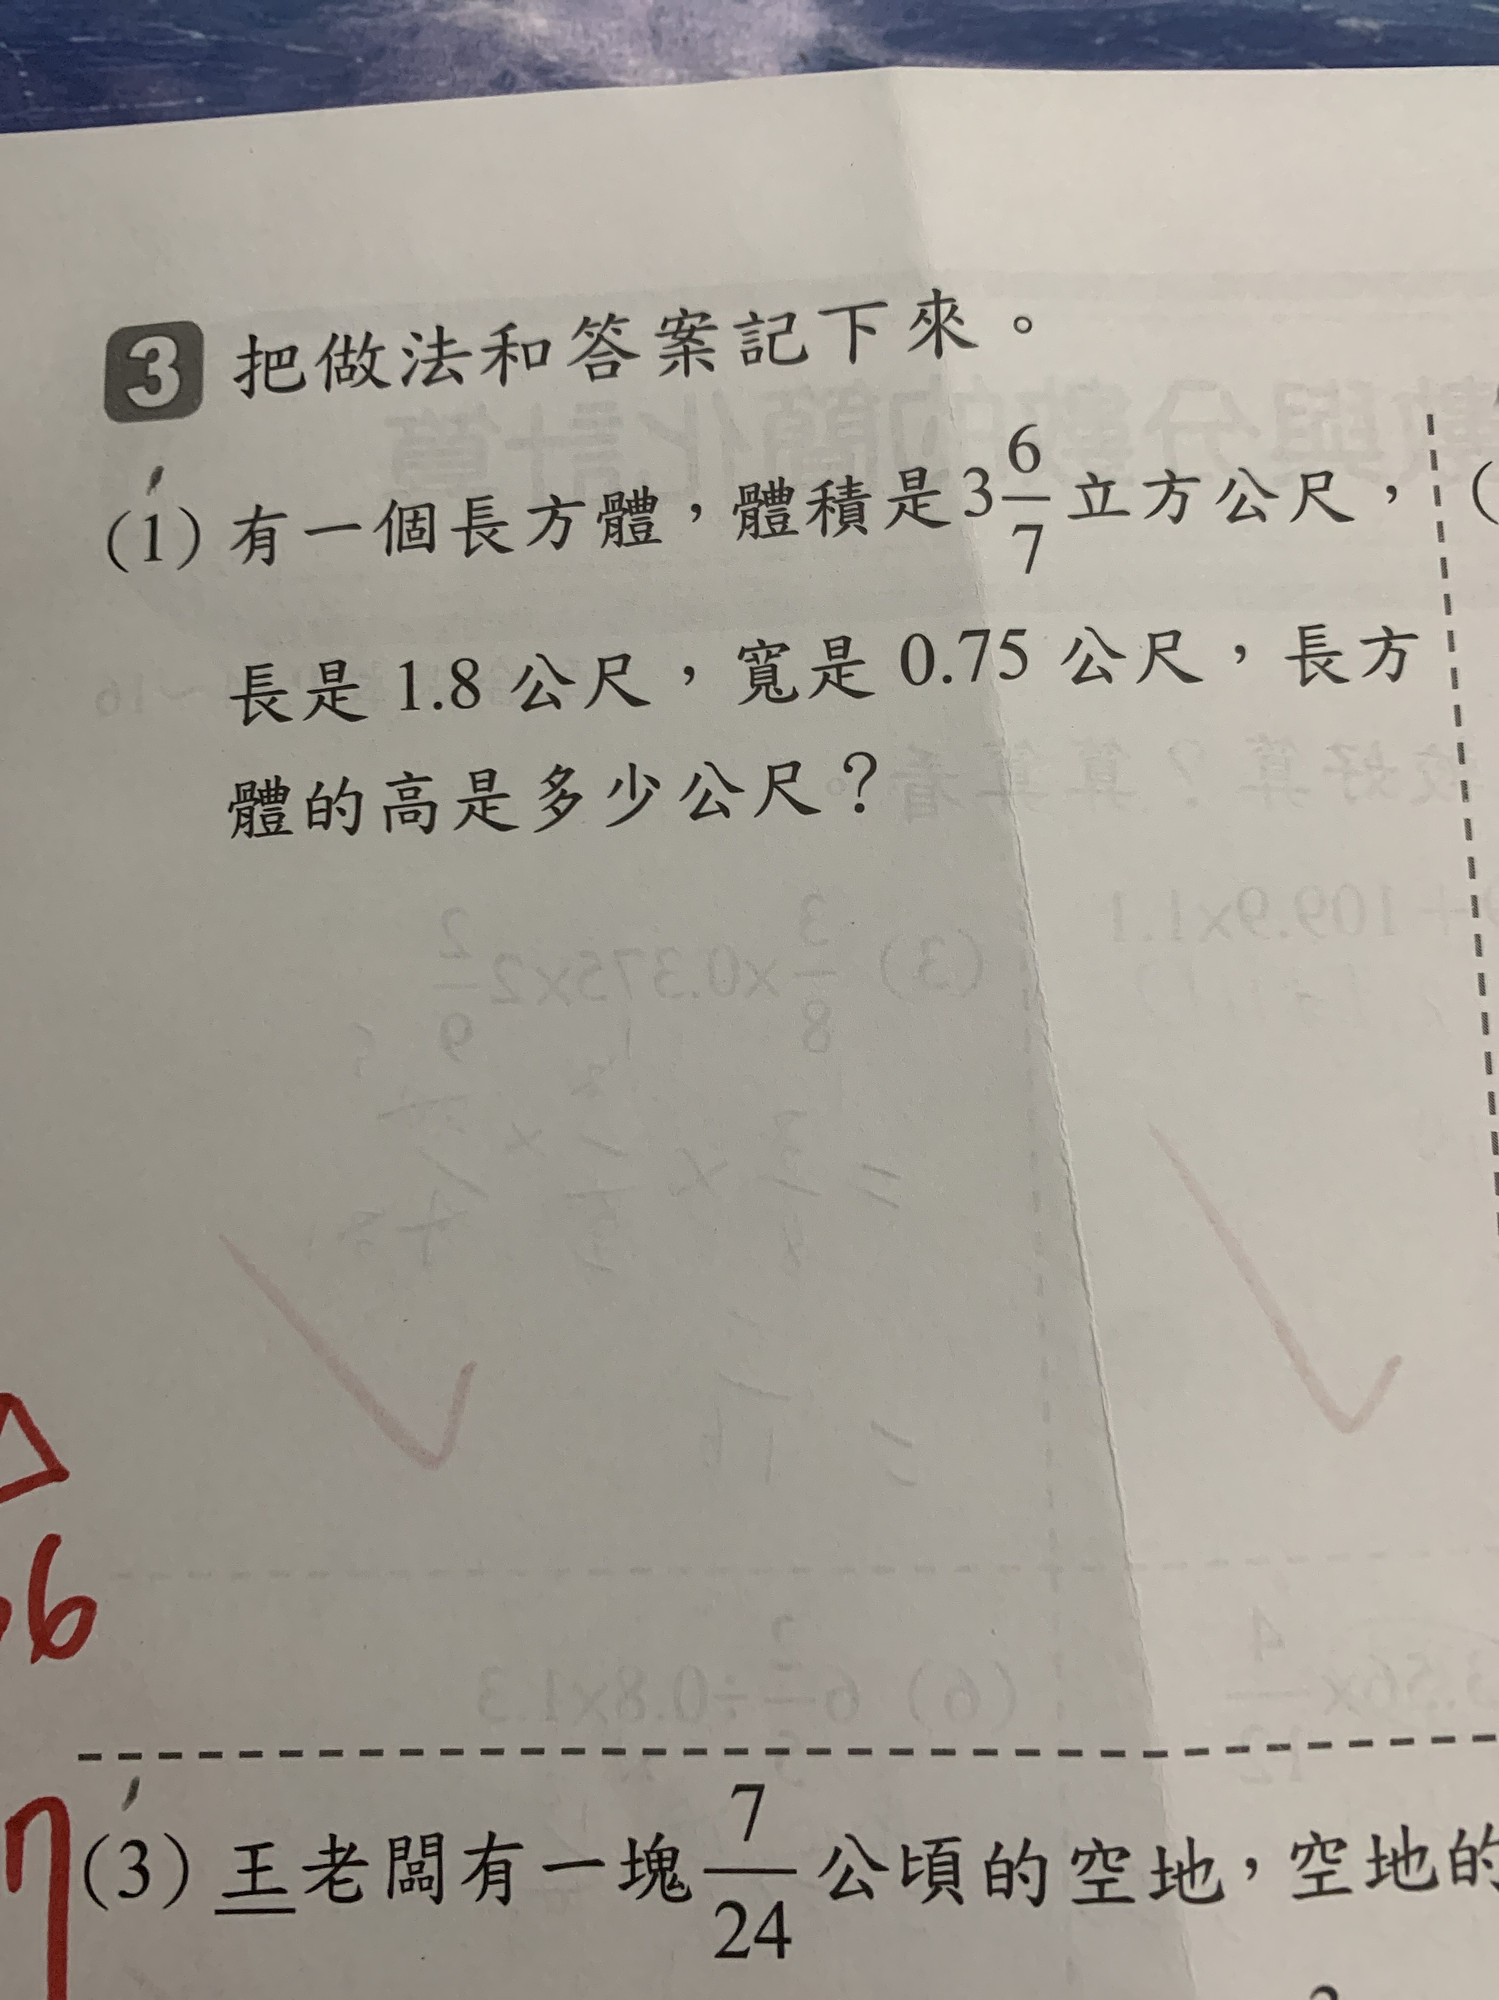 3 把做法和答案記下來。
(1) 有一個長方體，體積是3 6/7 立方公尺，
長是 1.8 公尺，寬是 0.75 公尺，長方
體的高是多少公尺？
(3) 王老闆有一塊 7/24 公頃的空地，空地的